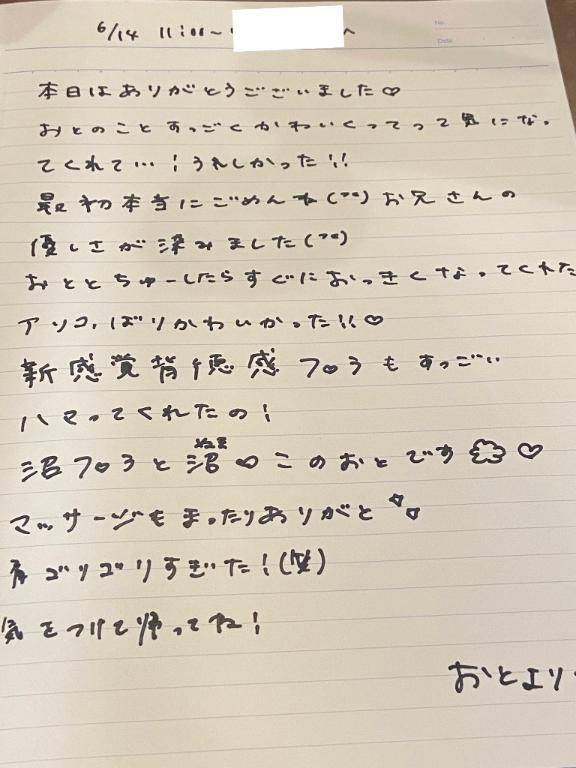 6/14 11:00〜
No.
Date
本日はありがとうございました♡
おとのことすっごくかわいくってって気にな。
てくれて…！うれしかった!!
最初本当にごめんね お兄さんの
優しさが染みました
おととちゅーしたらすぐにおっきくなってくれた
アソコ、ばりかわいかった!!♡
新感覚背徳感フロ3もすっごい
ハマってくれたの！
沼フロ3と沼 ∞このおとです♡
ぬま
マッサージもまったりありがと
肩ゴリゴリすぎた！(笑)
気をつけて帰ってね！
おとより